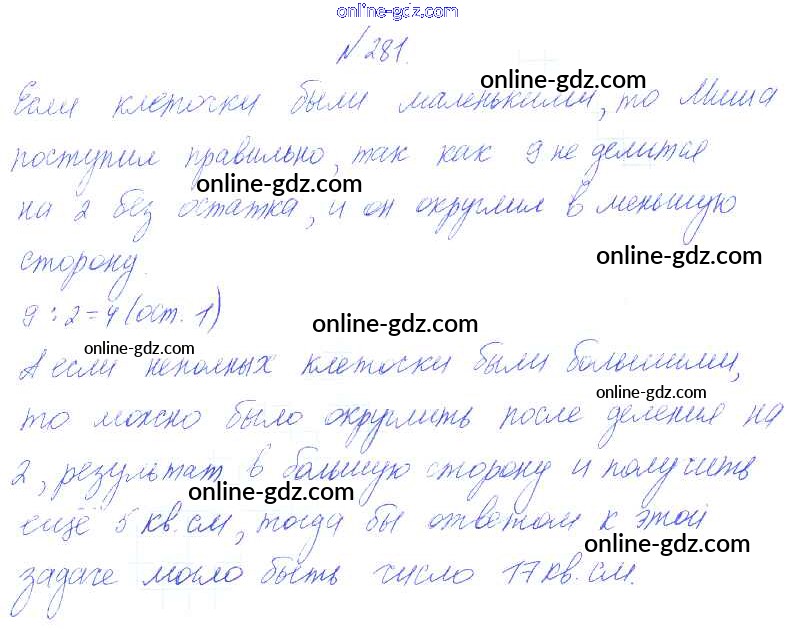 online-gdz.com
№ 281.
online-gdz.com
Если клеточки были маленькими, то Миша
поступил правильно, так как 9 не делится
online-gdz.com
на 2 без остатка, и он округлил в меньшую
сторону.
online-gdz.com
9 : 2 = 4 (ост. 1)
online-gdz.com
online-gdz.com
А если неполных клеточки были большими,
online-gdz.com
то можно было округлить после деления на
2, результат в большую сторону и получить
online-gdz.com
ещё 5 кв. см, тогда бы ответом к этой
online-gdz.com
задаче могло быть число 17 кв. см.